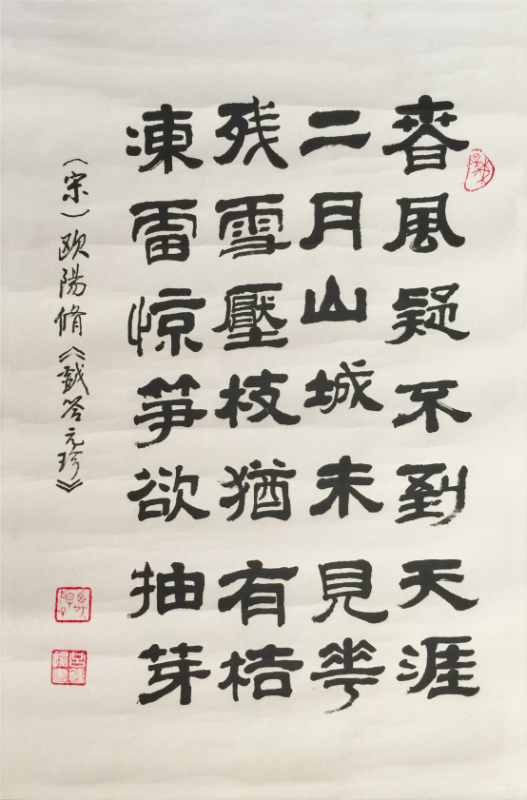 春風疑不到天涯
二月山城未見花
残雪壓枝猶有桔
凍雷惊笋欲抽芽
（宋）欧陽脩《戲答元珍》